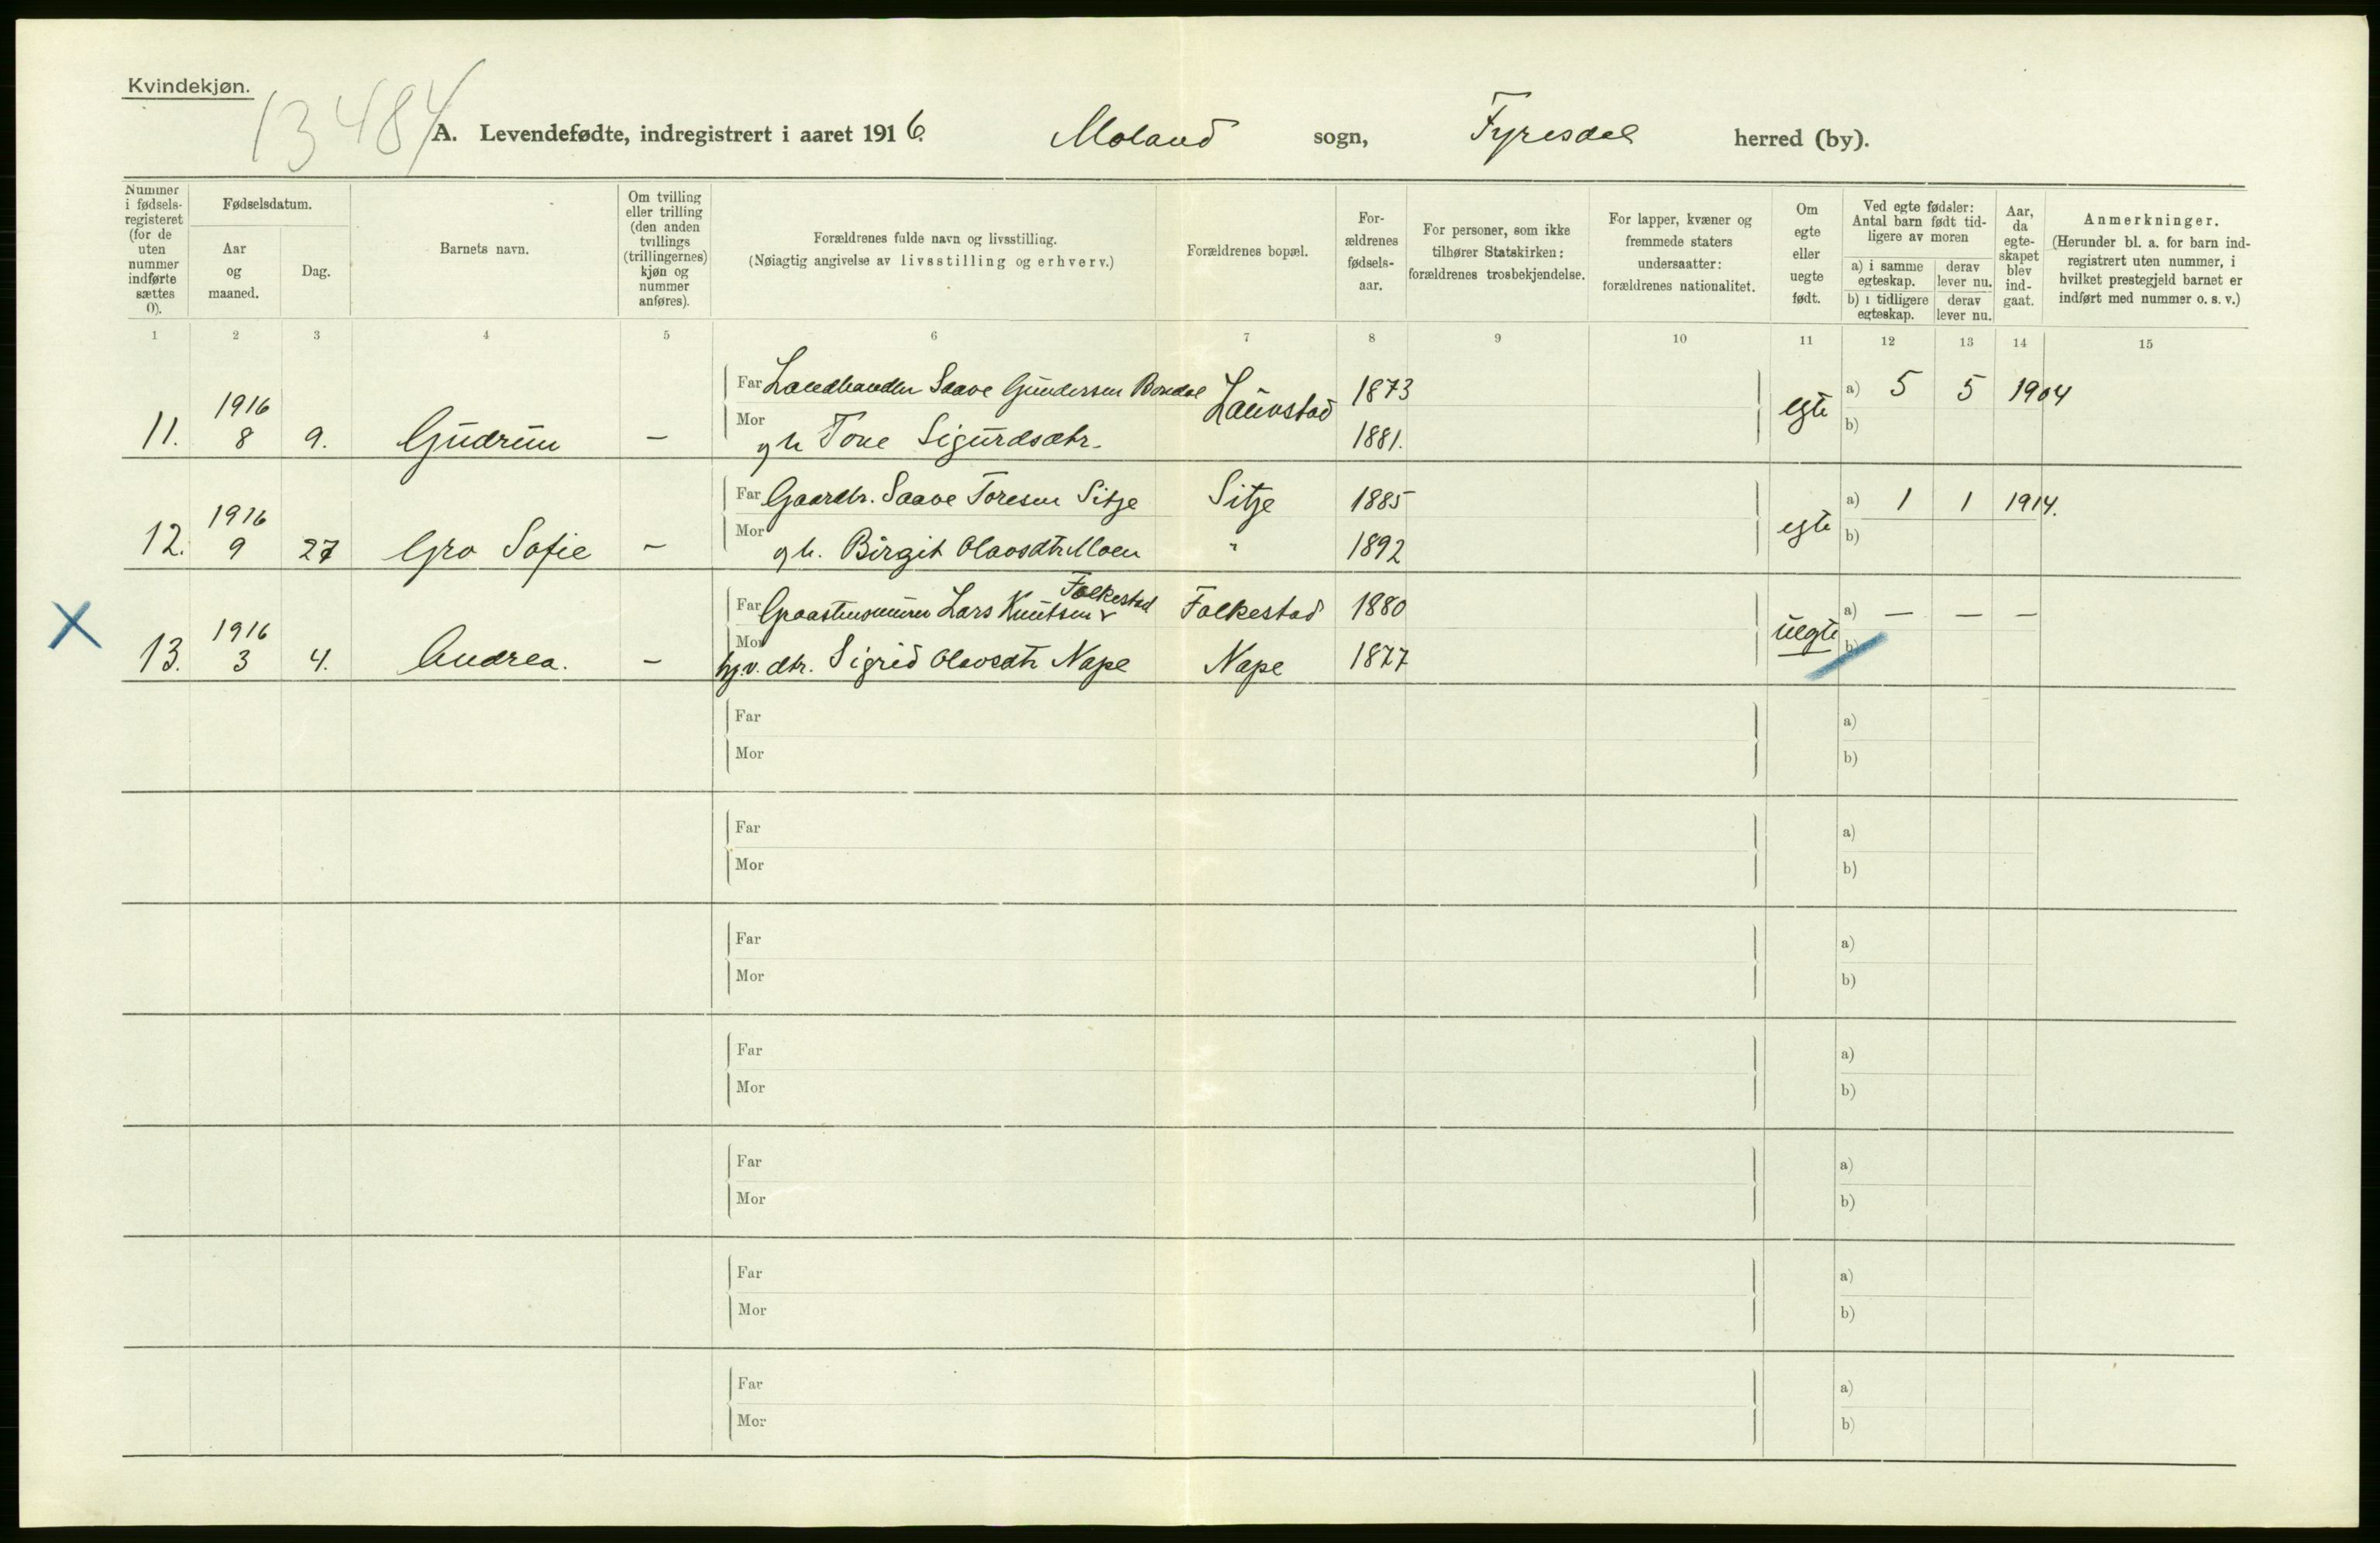 Kvindekjøn.
13484
A. Levendefødte, indregistrert i aaret 1916. Moland sogn, Fyresdal herred (by).
Nummer i fødsels-registeret (for de uten nummer indførte sættes 0).
Fødselsdatum.
Aar og maaned.
Dag.
Barnets navn.
Om tvilling eller trilling (den anden tvillings (trillingernes) kjøn og nummer anføres).
Forældrenes fulde navn og livsstilling.
(Nøiagtig angivelse av livsstilling og erhverv.)
Forældrenes bopæl.
For-ældrenes fødsels-aar.
For personer, som ikke tilhører Statskirken: forældrenes trosbekjendelse.
For lapper, kvæner og fremmede staters undersaatter: forældrenes nationalitet.
Om egte eller uegte født.
Ved egte fødsler: Antal barn født tid-ligere av moren
a) i samme egteskap. derav lever nu.
b) i tidligere egteskap. derav lever nu.
Aar, da egte-skapet blev ind-gaat.
Anmerkninger.
(Herunder bl. a. for barn ind-registrert uten nummer, i hvilket prestegjeld barnet er indført med nummer o. s. v.)
1 2 3 4 5 6 7 8 9 10 11 12 13 14 15
Far Landhandler Saave Gundersen Bondal Lauvstad 1873 egte a) 5 5 1904
11. 1916 8 9. Gudrun – Mor g h Tone Sigurdsdtr. 1881. b)
Far Gaardbr. Saave Toresen Sitje Sitje 1885 egte a) 1 1 1914.
12. 1916 9 27 Gro Sofie – Mor g h. Birgit Olavsdtr Moen " 1892 b)
Far Lars Knutsen Folkestad Folkestad 1880 uegte a) – – –
X 13. 1916 3 4. Andrea. – Mor hj.v. dtr. Sigrid Olavsdtr Nape Nape 1877 b)
Far a)
Mor b)
Far a)
Mor b)
Far a)
Mor b)
Far a)
Mor b)
Far a)
Mor b)
Far a)
Mor b)
Far a)
Mor b)